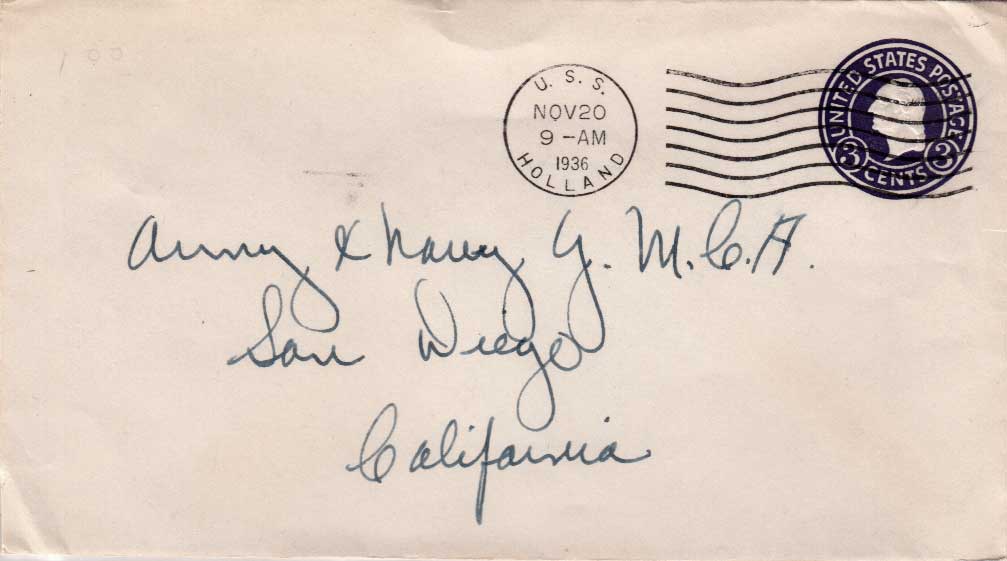 U. S. S.
NOV 20
9 - AM
1936
HOLLAND
UNITED STATES POSTAGE
3 CENTS 3
Army & Navy Y. M. C. A.
San Diego
California